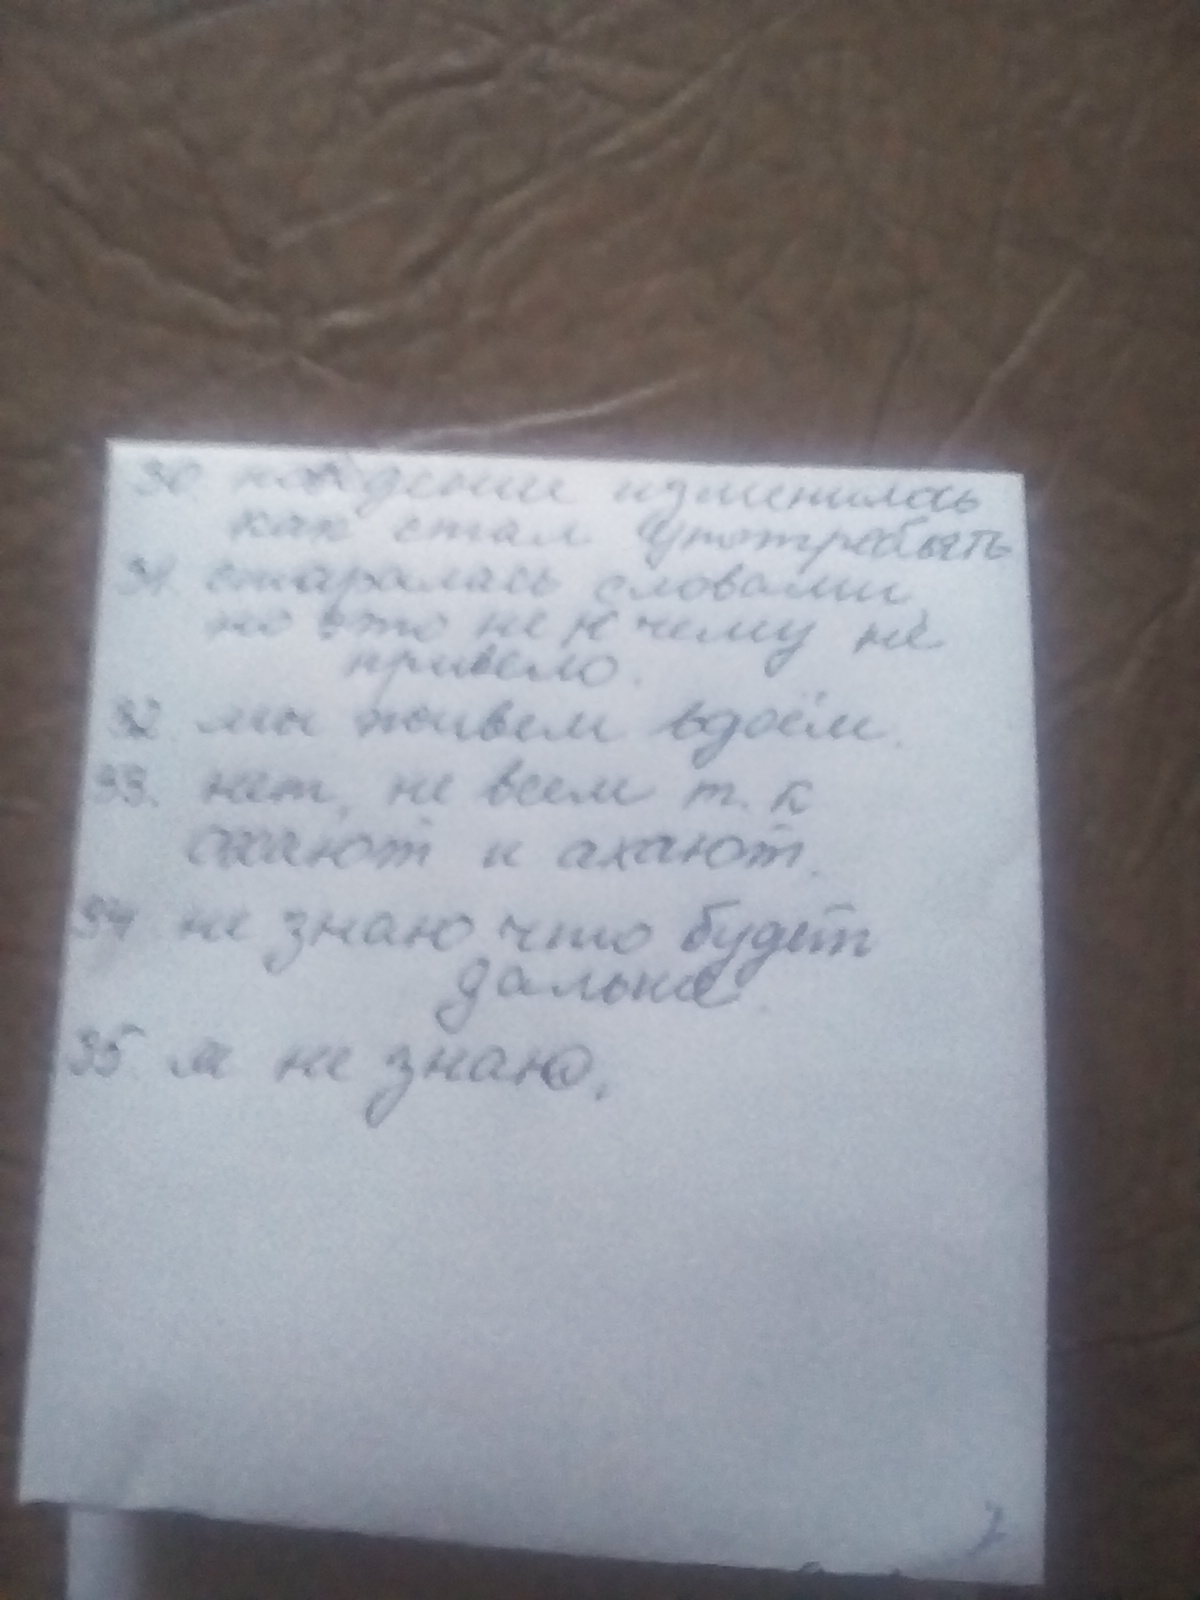 30. поведение изменилось
как стал употреблять
31. старалась словами,
но это не к чему не
привело.
32 мы живем вдоём.
33. нет, не всем т. к
охают и ахают.
34 не знаю что будет
дальше.
35. я не знаю.
7